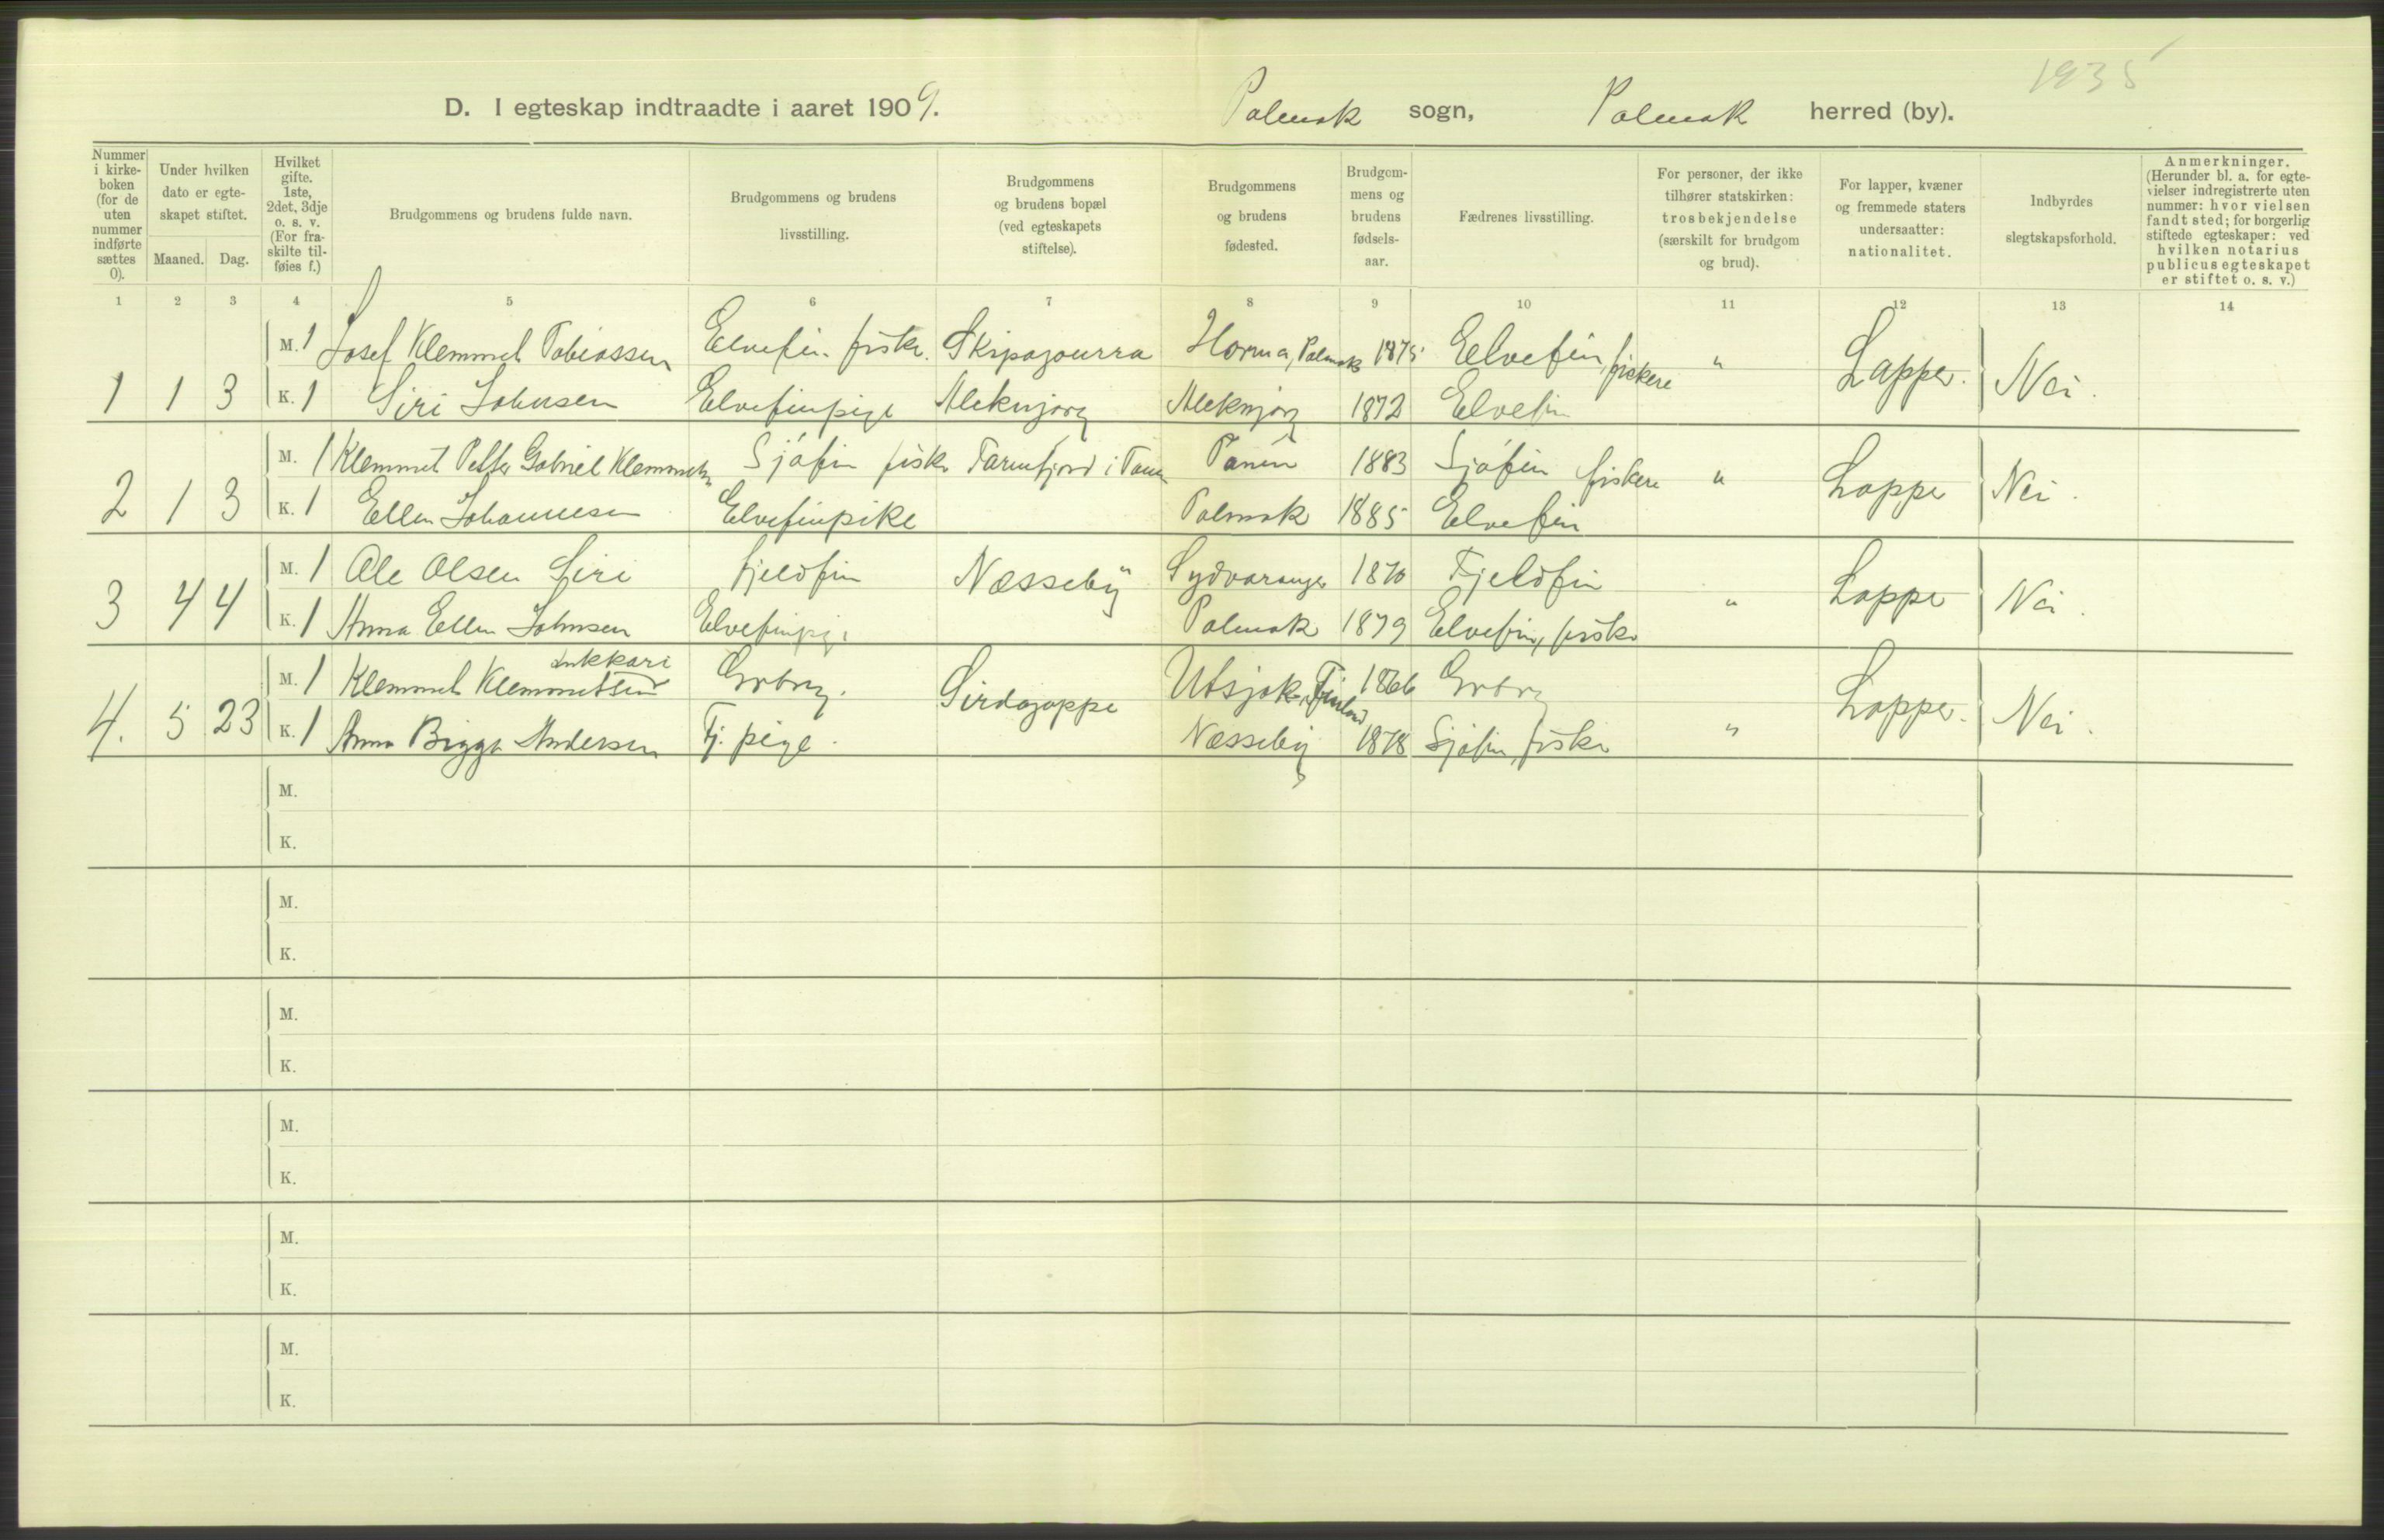 1935
D. I egteskap indtraadte i aaret 1909. Polmak sogn, Polmak herred (by).
Nummer i kirkeboken (for de uten nummer indførte sættes 0).
Under hvilken dato er egteskapet stiftet.
Maaned. Dag.
Hvilket gifte. 1ste, 2det, 3dje o. s. v. (For fraskilte tilføies f.)
Brudgommens og brudens fulde navn.
Brudgommens og brudens livsstilling.
Brudgommens og brudens bopæl (ved egteskapets stiftelse).
Brudgommens og brudens fødested.
Brudgommens og brudens fødselsaar.
Fædrenes livsstilling.
For personer, der ikke tilhører statskirken: trosbekjendelse (særskilt for brudgom og brud).
For lapper, kvæner og fremmede staters undersaatter: nationalitet.
Indbyrdes slegtskapsforhold.
Anmerkninger. (Herunder bl. a. for egtevielser indregistrerte uten nummer: hvor vielsen fandt sted; for borgerlig stiftede egteskaper: ved hvilken notarius publicus egteskapet er stiftet o. s. v.)
1 2 3 4 5 6 7 8 9 10 11 12 13 14
M. 1 Josef Klemmet Tobiassen Elvefin. fisker. Skipagourra Horma, Polmak 1875 Elvefin, fiskere " Lapper. Nei.
1 1 3 K. 1 Siri Johnsen Elvefinpige Aleknjarg Aleknjarg 1872 Elvefin
M. 1 Klemmet Petter Gabriel Klemmetsen Sjøfin fisker Tarmfjord i Tanen Tanen 1883 Sjøfin fiskere " Lapper Nei.
2 1 3 K. 1 Ellen Johannesen Elvefinpike Polmak 1885 Elvefin
M. 1 Ole Olsen Siri fjeldfin Næsseby Sydvaranger 1870 Fjeldfin " Lapper Nei.
3 4 4 K. 1 Anna Ellen Johnsen Elvefinpige Polmak 1879 Elvefin, fisker
Lukkari
M. 1 Klemmet Klemmetsen Grbrg. Sirdagoppe Utsjok, Finland 1866 Grbrg " Lapper. Nei.
4. 5 23 K. 1 Anna Birgga Andersen Tj. pige. Næsseby 1878 Sjøfin, fisker
M.
K.
M.
K.
M.
K.
M.
K.
M.
K.
M.
K.